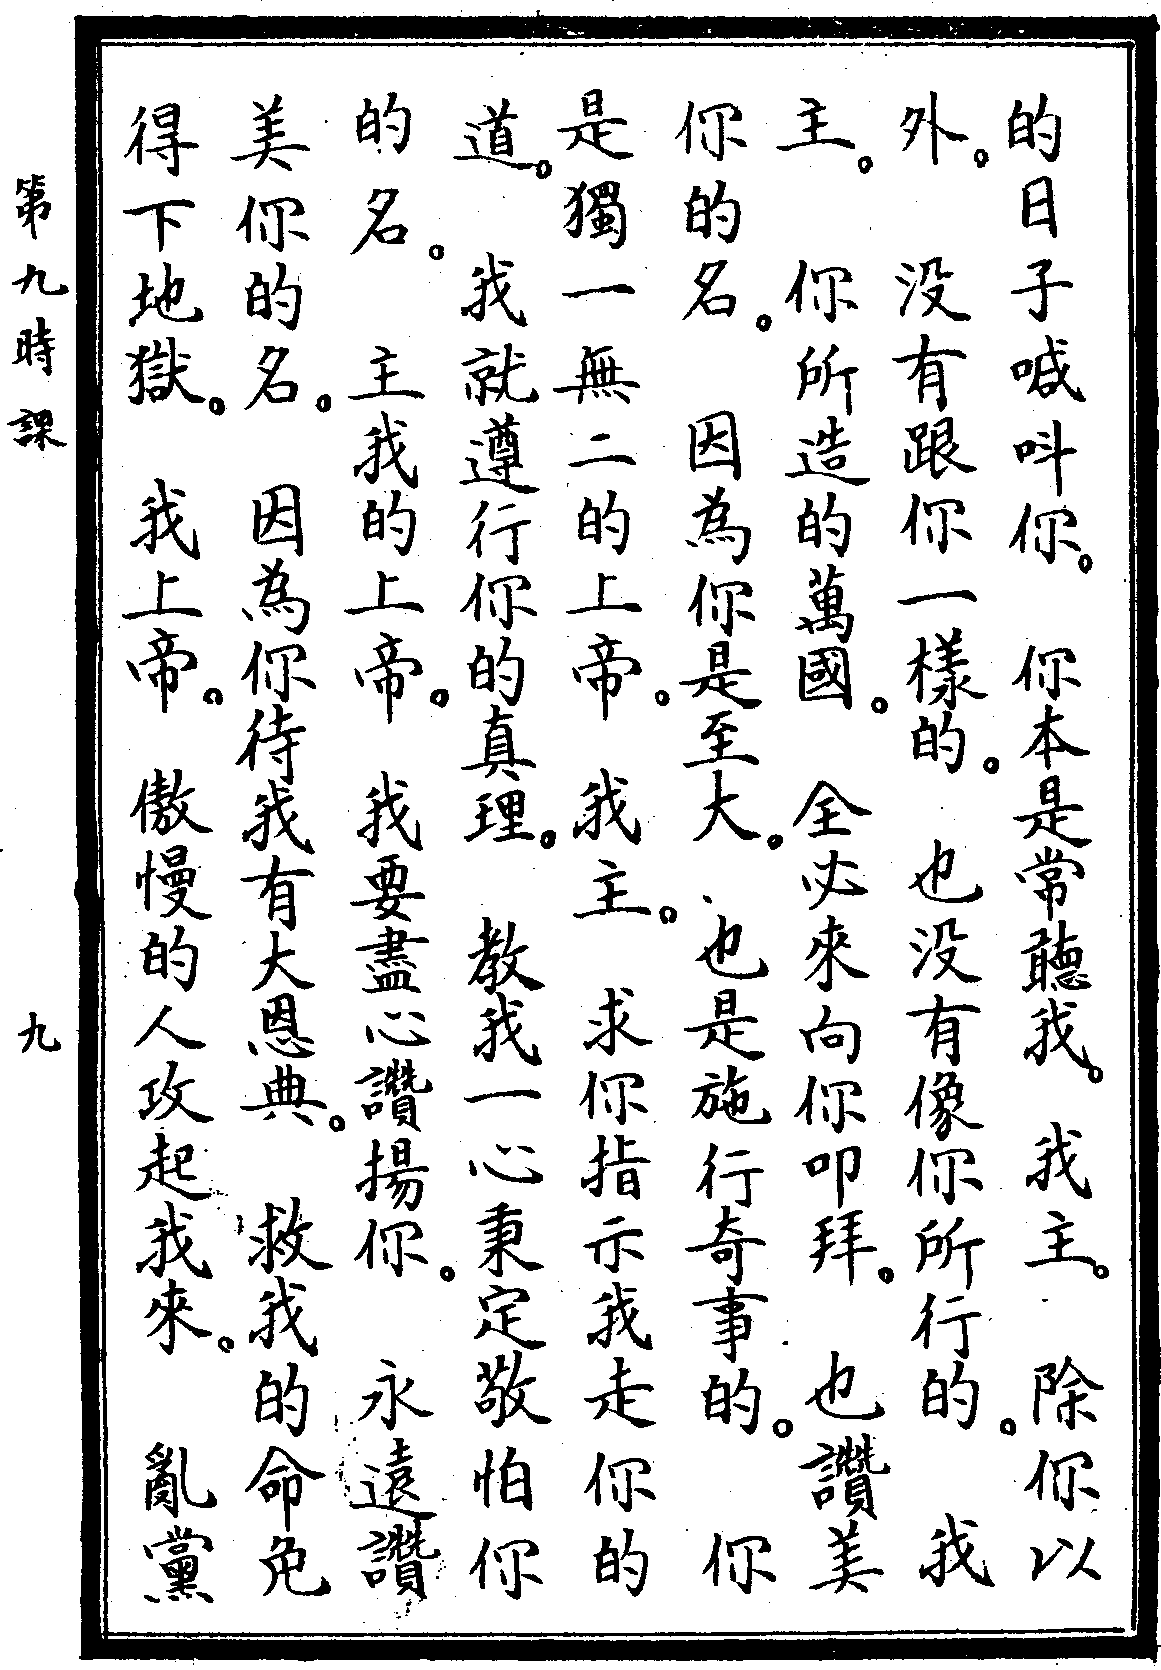 的日子喊呌你。你本是常聽我。我主。除你以
外。没有跟你一樣的。也没有像你所行的。我
主。你所造的萬國。全必來向你叩拜。也讚美
你的名。因為你是至大。也是施行奇事的。你
是獨一無二的上帝。我主。求你指示我走你的
道。我就遵行你的真理。教我一心秉定敬怕你
的名。主我的上帝。我要盡心讚揚你。永遠讚
美你的名。因為你待我有大恩典。救我的命免
得下地獄。我上帝。傲慢的人攻起我來。亂黨
第九時課
九